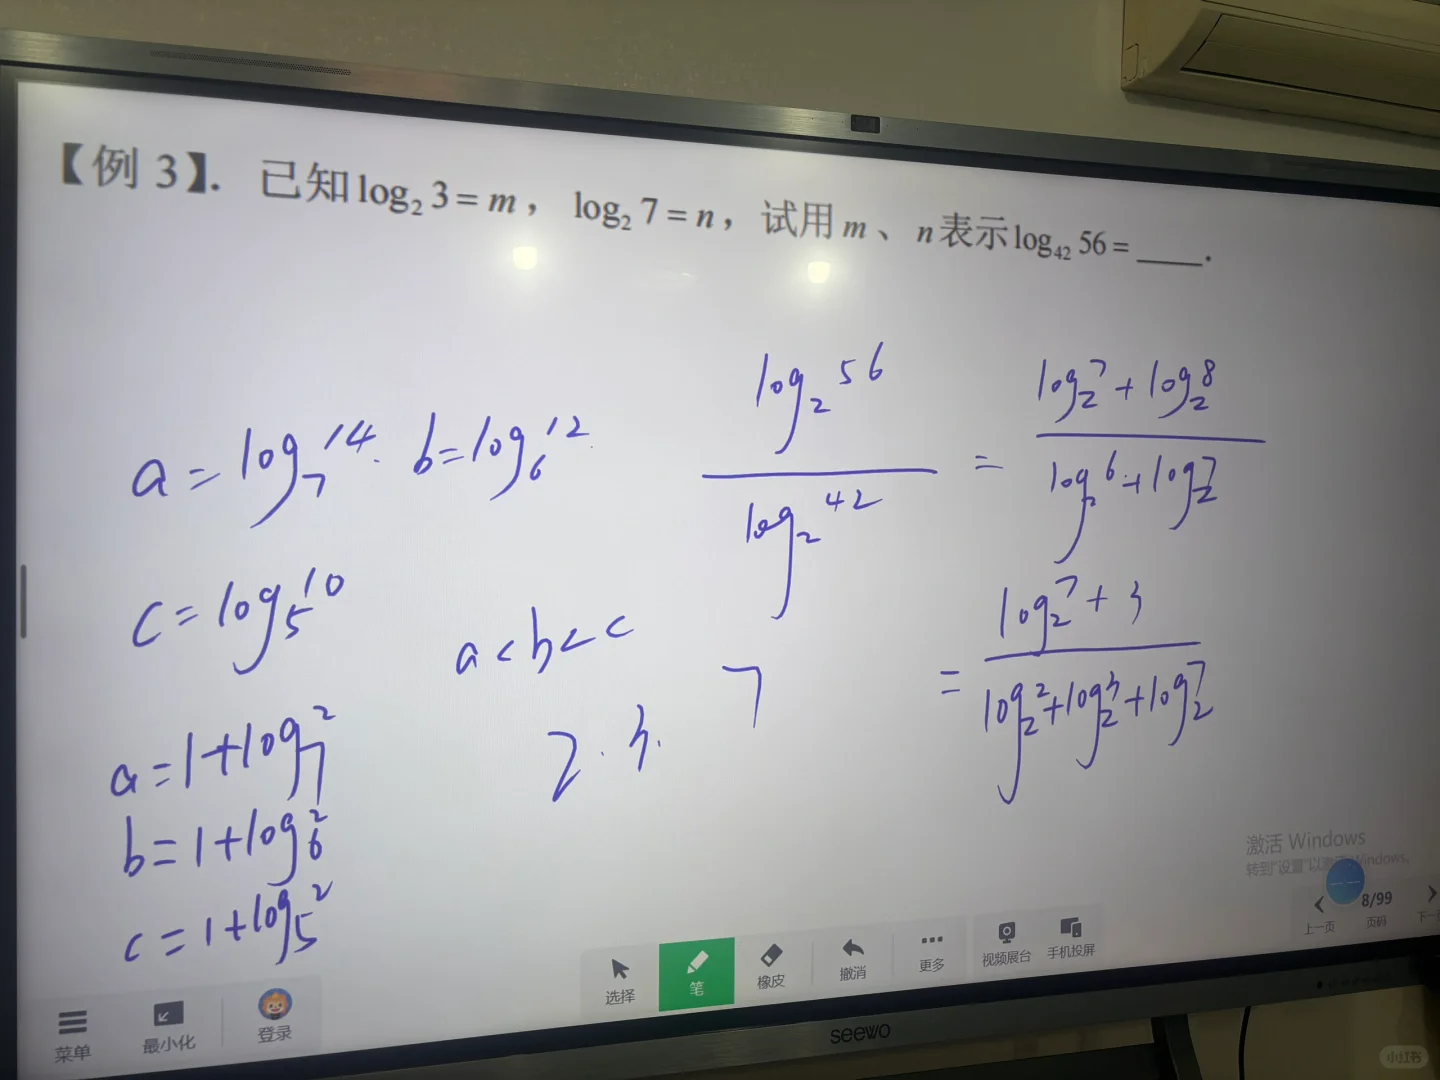 【例 3】. 已知 log₂ 3 = m， log₂ 7 = n，试用 m 、 n 表示 log₄₂ 56 = ____.
a = log₇14. b = log₆12
c = log₅10
a < b < c
2. 3. 7
a = 1 + log₇2
b = 1 + log₆2
c = 1 + log₅2
log₂56 / log₂42 = (log₂7 + log₂8) / (log₂6 + log₂7)
= (log₂7 + 3) / (log₂2 + log₂3 + log₂7)
激活 Windows
转到"设置"以激活 Windows。
菜单 最小化 登录
选择 笔 橡皮 撤消 更多 视频展台 手机投屏
上一页 8/99 页码 下一
seewo
小红书